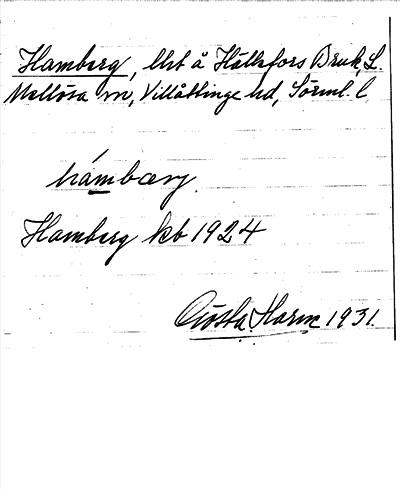 Hamberg, lht å Hällefors Bruk, L.
Mellösa sn, Villåttinge hd, Sörml. l.
hámbærj.
Hamberg kb 1924
Gösta Harm 1931.